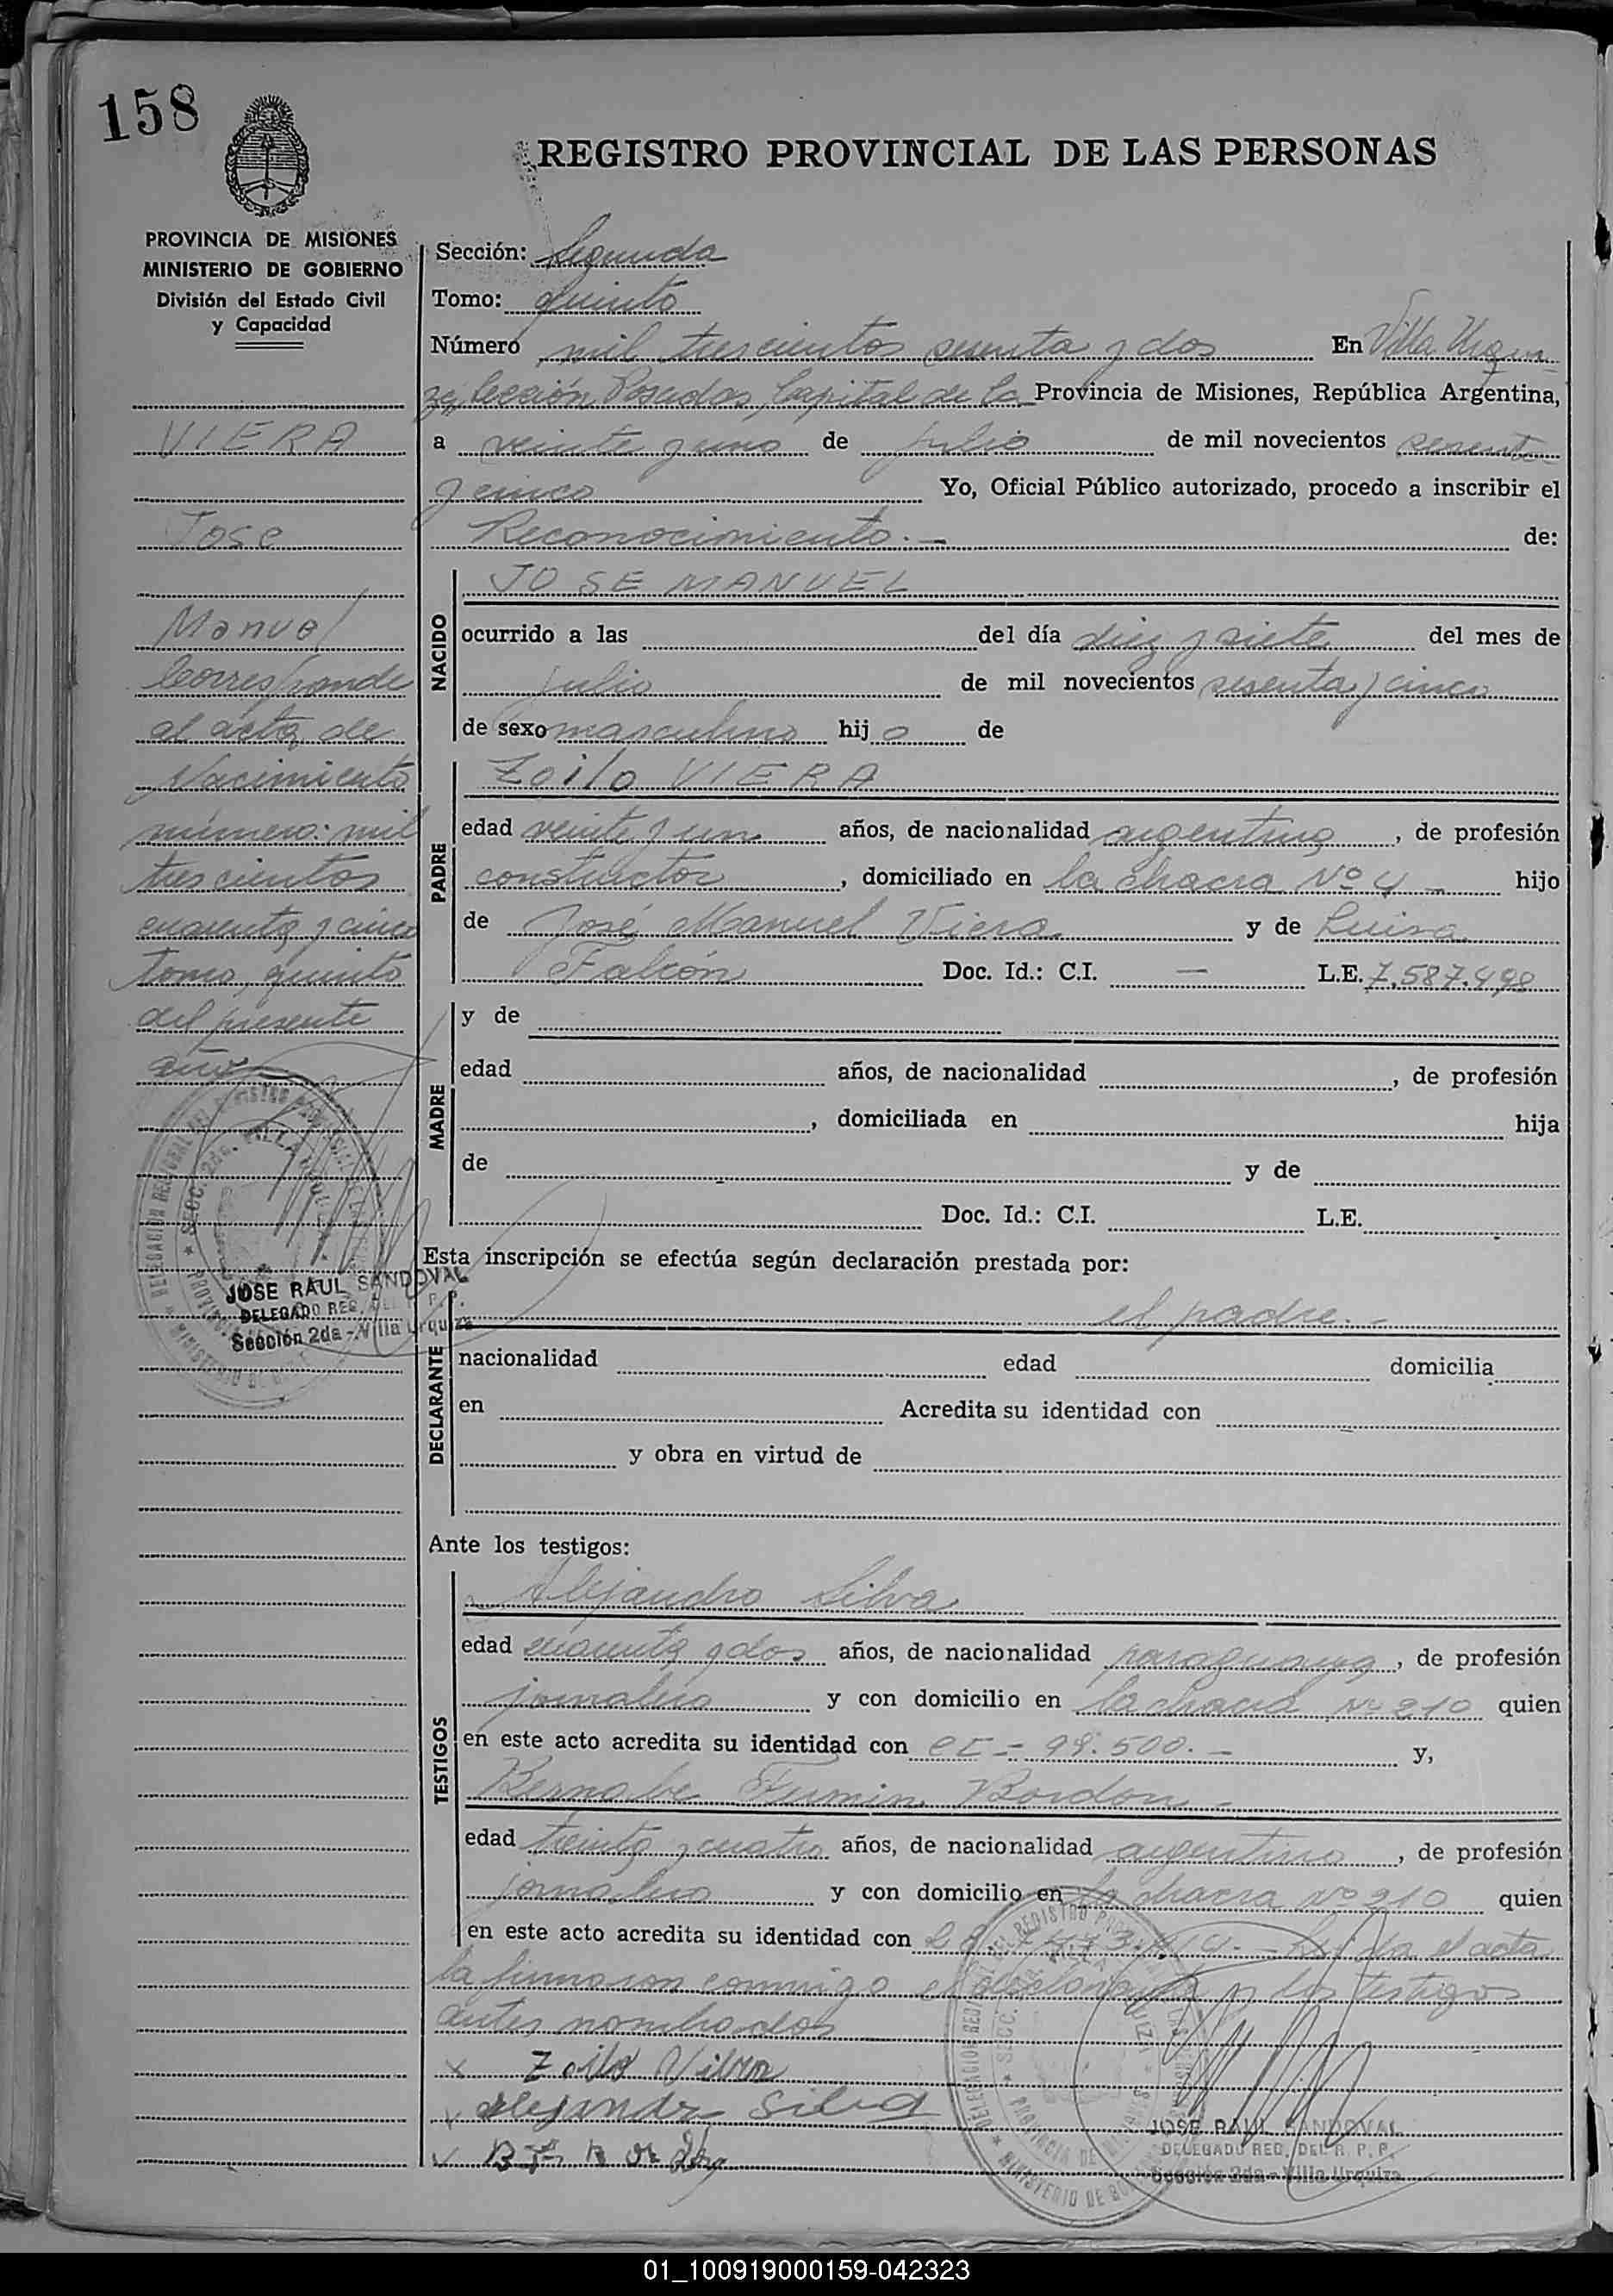 158
REGISTRO PROVINCIAL DE LAS PERSONAS
PROVINCIA DE MISIONES
MINISTERIO DE GOBIERNO
División del Estado Civil
y Capacidad
VIERA
Jose
Manuel
Corresponde
al acta de
Nacimiento
número: mil
trescientos
cuarenta y cinco
tomo quinto
del presente
año
JOSE RAUL SANDOVAL
DELEGADO REG. DEL R. P. P.
Sección 2da - Villa Urquiza
Sección: Segunda
Tomo: quinto
Número mil trescientos y dos En Villa Urqui
za Sección Posadas, Capital de la Provincia de Misiones, República Argentina,
a veinte y uno de julio de mil novecientos sesenta
y cinco Yo, Oficial Público autorizado, procedo a inscribir el
Reconocimiento.- de:
NACIDO
JOSE MANUEL
ocurrido a las del día diez y siete del mes de
julio de mil novecientos sesenta y cinco
de sexo masculino hijo de
PADRE
Zoilo VIERA
edad veinte y un años, de nacionalidad argentina, de profesión
constructor, domiciliado en la chacra Nº 4 - hijo
de José Manuel Viera y de Luisa
Falcón Doc. Id.: C.I. — L.E. 7.587.498
MADRE
y de
edad años, de nacionalidad , de profesión
, domiciliada en hija
de y de
Doc. Id.: C.I. L.E.
Esta inscripción se efectúa según declaración prestada por:
DECLARANTE
el padre.-
nacionalidad edad domicilia
en Acredita su identidad con
y obra en virtud de
Ante los testigos:
TESTIGOS
Alejandro Silva
edad cuarenta y dos años, de nacionalidad paraguaya, de profesión
jornalero y con domicilio en la chacra Nº 210 quien
en este acto acredita su identidad con CI - 98.500.- y,
Bernabe Fermin Bordon -
edad treinta y cuatro años, de nacionalidad argentino, de profesión
jornalero y con domicilio en la chacra Nº 210 quien
en este acto acredita su identidad con el acta
la firmaron conmigo el declarante y los testigos
antes nombrados
x Zoilo Viera
x alejandr Silva
x
JOSE RAUL SANDOVAL
DELEGADO REG. DEL R. P. P.
Sección 2da - Villa Urquiza
01_100919000159-042323